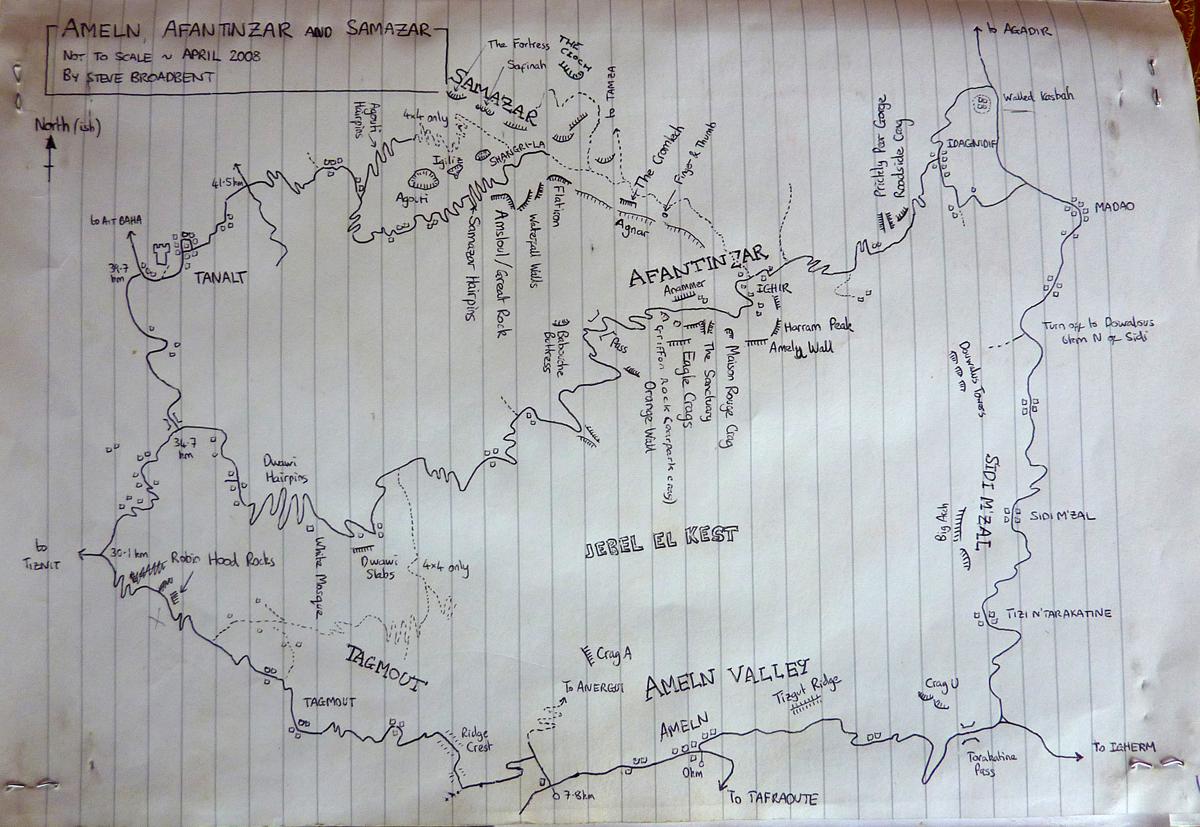 AMELN, AFANTINZAR AND SAMAZAR
NOT TO SCALE ~ APRIL 2008
BY STEVE BROADBENT
North (ish)
The Fortress
Safinah
THE CLOCH
SAMAZAR
to TAMZA
to AGADIR
Walled Kasbah
IDAGNIDIF
MADAO
Agouti Hairpins
4x4 only
Igili
SHANGRI-LA
Agouti
The Cromlech
Finger & Thumb
Prickly Pear Gorge
Roadside Crag
41.5km
to AIT BAHA
39.7 km
TANALT
Samazar Hairpins
Amsloul/Great Rock
Waterfall Walls
Flatiron
Agnar
AFANTINZAR
Anammer
IGHIR
Harram Peak
Ameln Wall
Maison Rouge Crag
The Sanctuary
Eagle Crags
Griffon Rock (carpark crag)
Orange Wall
Pass
Babouche Buttress
Turn off to Douwalous
6km N of Sidi
Douwalus Towers
SIDI M'ZAL
Big Ach
SIDI M'ZAL
TIZI N'TARAKATINE
34.7 km
Dwawi Hairpins
White Mosque
Dwawi Slabs
4x4 only
JEBEL EL KEST
to TIZNIT
30.1km
Robin Hood Rocks
TAGMOUT
TAGMOUT
Ridge Crest
Crag A
To ANERGUI
AMELN VALLEY
Tizgut Ridge
AMELN
0km
7.8km
To TAFRAOUTE
Crag U
Tarakatine Pass
To IGHERM